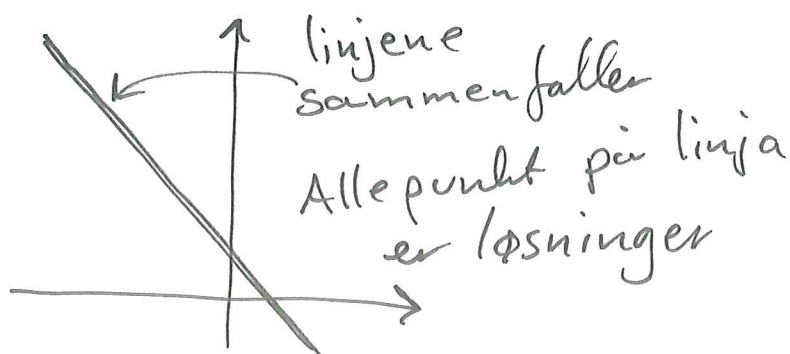 linjene
sammenfaller
Alle punkt på linja
er løsninger